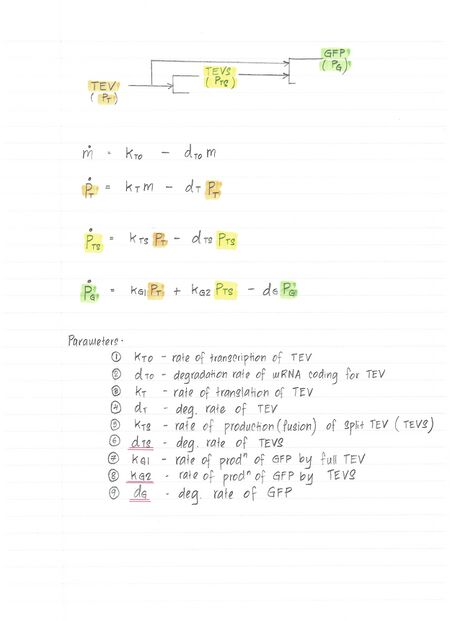 GFP
(PG)
TEVS
(PTS)
TEV
(PT)
ṁ = kTO - dTO m
ṖT = kT m - dT PT
ṖTS = kTS PT - dTS PTS
ṖG = kG1 PT + kG2 PTS - dG PG
Parameters.
① kTO - rate of transcription of TEV
② dTO - degradation rate of mRNA coding for TEV
③ kT - rate of translation of TEV
④ dT - deg. rate of TEV
⑤ kTS - rate of production (fusion) of split TEV (TEVS)
⑥ dTS - deg. rate of TEVS
⑦ kG1 - rate of prodⁿ of GFP by full TEV
⑧ kG2 - rate of prodⁿ of GFP by TEVS
⑨ dG - deg. rate of GFP